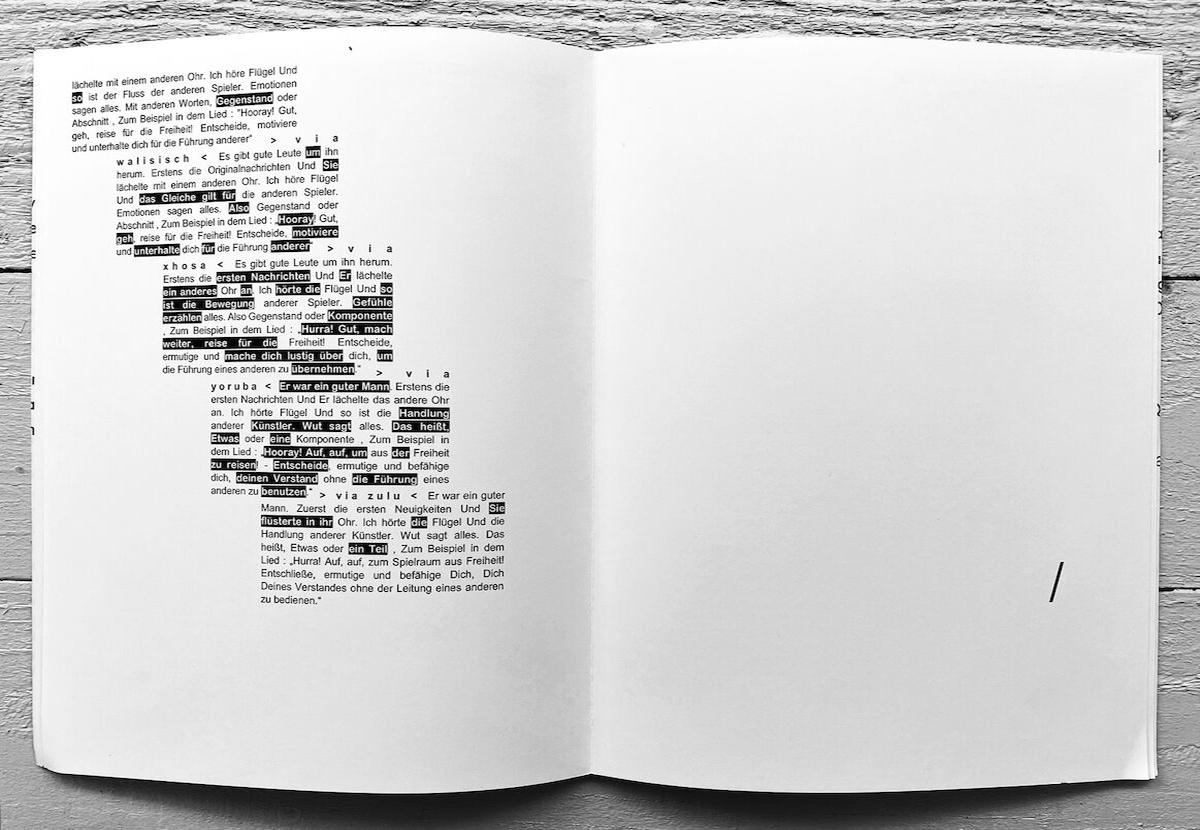 lächelte mit einem anderen Ohr. Ich höre Flügel Und
so ist der Fluss der anderen Spieler. Emotionen
sagen alles. Mit anderen Worten, Gegenstand oder
Abschnitt , Zum Beispiel in dem Lied : "Hooray! Gut,
geh, reise für die Freiheit! Entscheide, motiviere
und unterhalte dich für die Führung anderer" > via
walisisch < Es gibt gute Leute um ihn
herum. Erstens die Originalnachrichten Und Sie
lächelte mit einem anderen Ohr. Ich höre Flügel
Und das Gleiche gilt für die anderen Spieler.
Emotionen sagen alles. Also Gegenstand oder
Abschnitt , Zum Beispiel in dem Lied : „Hooray! Gut,
geh, reise für die Freiheit! Entscheide, motiviere
und unterhalte dich für die Führung anderer" > via
xhosa < Es gibt gute Leute um ihn herum.
Erstens die ersten Nachrichten Und Er lächelte
ein anderes Ohr an. Ich hörte die Flügel Und so
ist die Bewegung anderer Spieler. Gefühle
erzählen alles. Also Gegenstand oder Komponente
, Zum Beispiel in dem Lied : „Hurra! Gut, mach
weiter, reise für die Freiheit! Entscheide,
ermutige und mache dich lustig über dich, um
die Führung eines anderen zu übernehmen." > via
yoruba < Er war ein guter Mann. Erstens die
ersten Nachrichten Und Er lächelte das andere Ohr
an. Ich hörte Flügel Und so ist die Handlung
anderer Künstler. Wut sagt alles. Das heißt,
Etwas oder eine Komponente , Zum Beispiel in
dem Lied : „Hooray! Auf, auf, um aus der Freiheit
zu reisen! - Entscheide, ermutige und befähige
dich, deinen Verstand ohne die Führung eines
anderen zu benutzen." > via zulu < Er war ein guter
Mann. Zuerst die ersten Neuigkeiten Und Sie
flüsterte in ihr Ohr. Ich hörte die Flügel Und die
Handlung anderer Künstler. Wut sagt alles. Das
heißt, Etwas oder ein Teil , Zum Beispiel in dem
Lied : „Hurra! Auf, auf, zum Spielraum aus Freiheit!
Entschließe, ermutige und befähige Dich, Dich
Deines Verstandes ohne der Leitung eines anderen
zu bedienen."
/